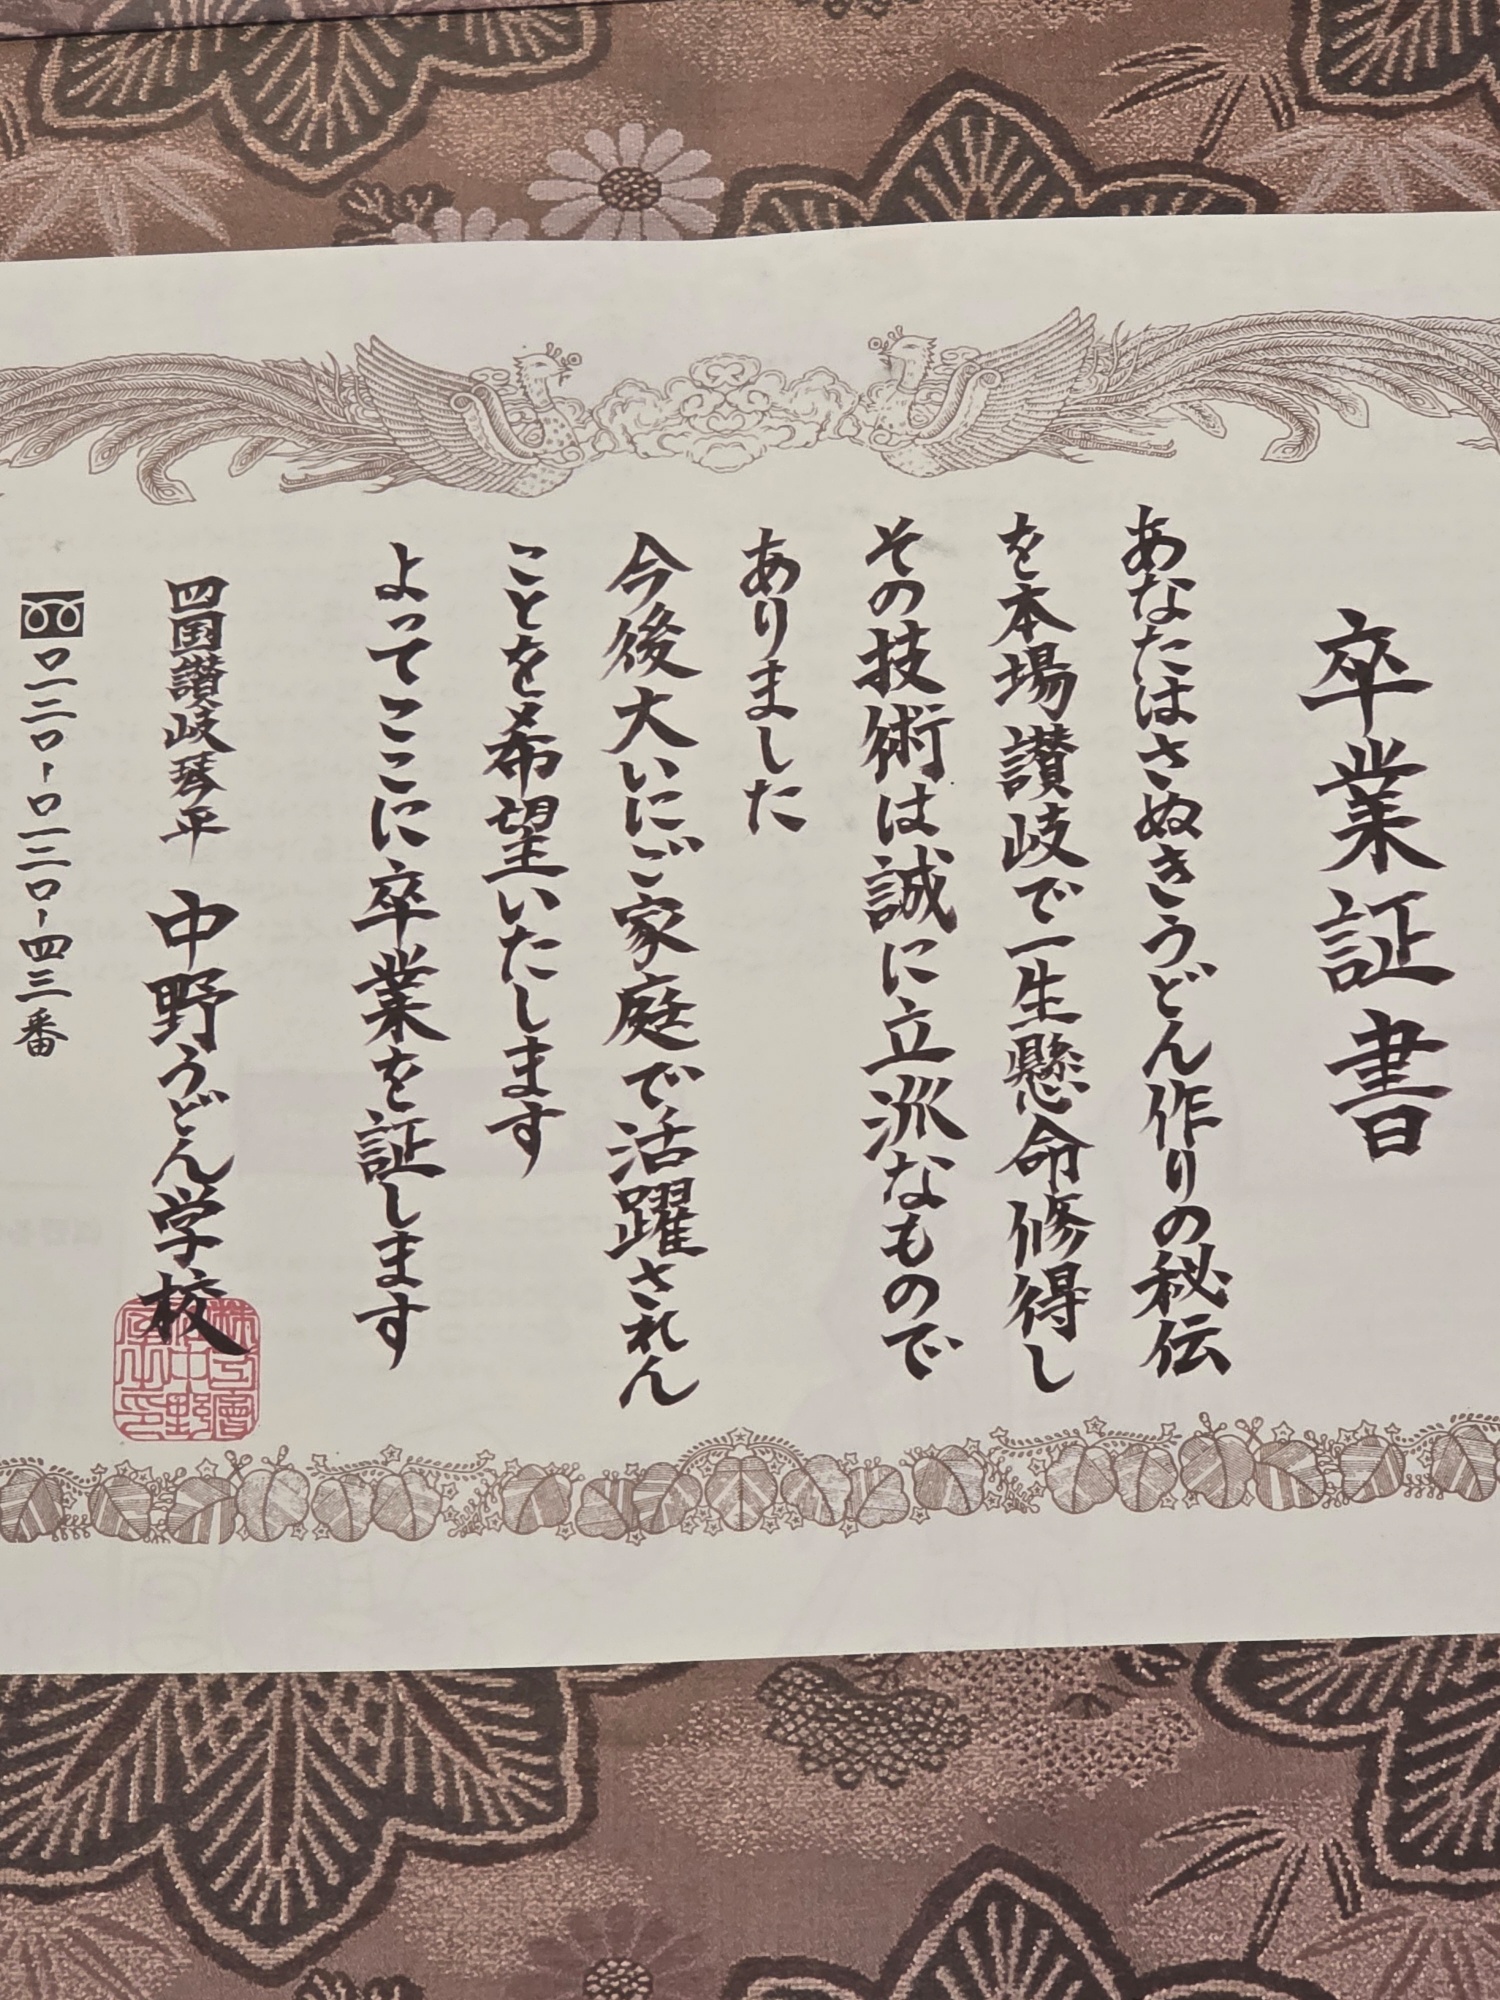 卒業証書
あなたはさぬきうどん作りの秘伝
を本場讃岐で一生懸命修得し
その技術は誠に立派なもので
ありました
今後大いにご家庭で活躍されん
ことを希望いたします
よってここに卒業を証します
四国讃岐琴平 中野うどん学校
〇一二〇-〇一三〇-四三番